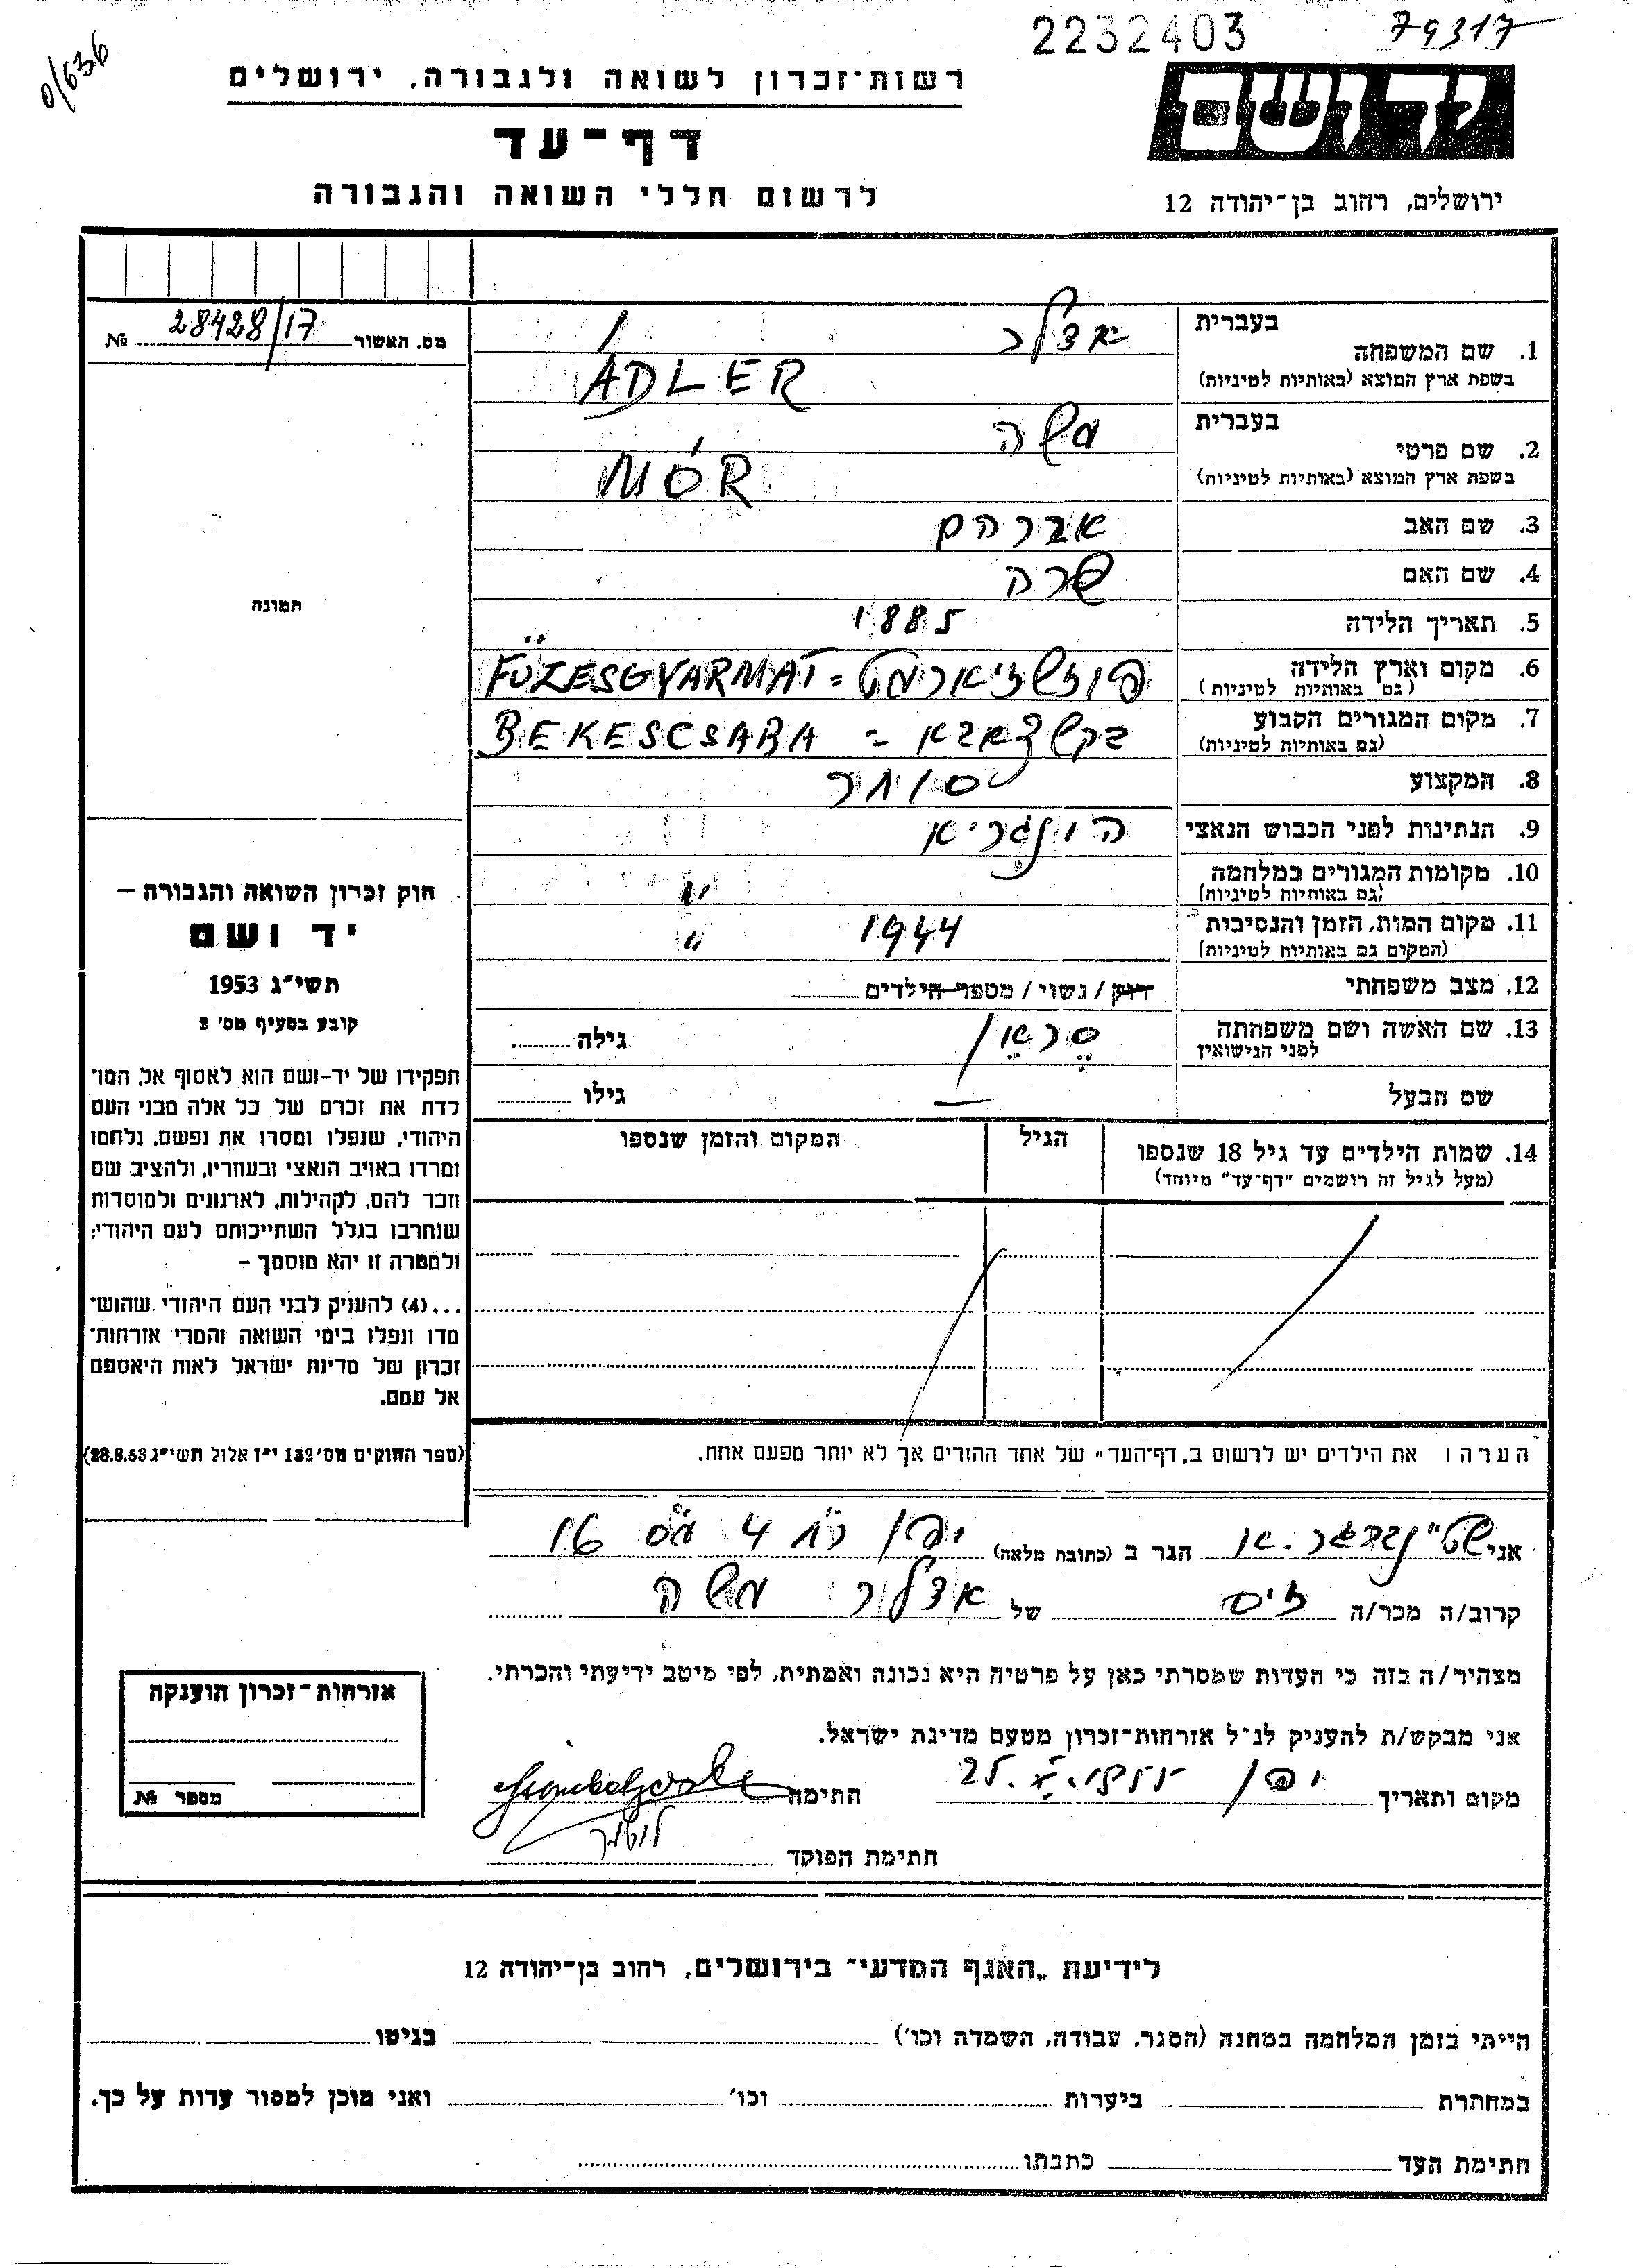 2232403
79317
0/636
רשות־זכרון לשואה ולגבורה, ירושלים
ידושם
דף־עד
לרשום חללי השואה והגבורה
ירושלים, רחוב בן־יהודה 12
מס. האשור 28428/17 №
בעברית
1. שם המשפחה אדלר
בשפת ארץ המוצא (באותיות לטיניות) ÁDLER
בעברית
2. שם פרטי משה
בשפת ארץ המוצא (באותיות לטיניות) MÓR
3. שם האב אברהם
4. שם האם שרה
5. תאריך הלידה 1885
6. מקום וארץ הלידה FÜZESGYARMAT = פוזשדיארמט
(גם באותיות לטיניות)
7. מקום המגורים הקבוע BEKESCSABA = בקשצאבא
(גם באותיות לטיניות)
8. המקצוע סוחר
9. הנתינות לפני הכבוש הנאצי הונגריא
10. מקומות המגורים במלחמה "
(גם באותיות לטיניות)
11. מקום המות, הזמן והנסיבות 1944 "
(המקום גם באותיות לטיניות)
12. מצב משפחתי רווק / נשוי / מספר הילדים
13. שם האשה ושם משפחתה
לפני הנישואין
גילה
שם הבעל — גילו
14. שמות הילדים עד גיל 18 שנספו
(מעל לגיל זה רושמים "דף־עד" מיוחד)
הגיל
המקום והזמן שנספו
תמונה
חוק זכרון השואה והגבורה —
יד ושם
תשי"ג 1953
קובע בסעיף מס' 2
תפקידו של יד-ושם הוא לאסוף אל המו־
לדת את זכרם של כל אלה מבני העם
היהודי, שנפלו ומסרו את נפשם, נלחמו
ומרדו באויב הנאצי ובעוזריו, ולהציב שם
וזכר להם, לקהילות, לארגונים ולמוסדות
שנחרבו בגלל השתייכותם לעם היהודי;
ולמטרה זו יהא מוסמך –
...(4) להעניק לבני העם היהודי שהוש־
מדו ונפלו בימי השואה והמרי אזרחות־
זכרון של מדינת ישראל לאות היאספם
אל עמם.
(ספר החוקים מס' 132 י"ז אלול תשי"ג 28.8.53)
הערה: את הילדים יש לרשום ב„דף־העד" של אחד ההורים אך לא יותר מפעם אחת.
אני הגר ב (כתובת מלאה) 16 4
קרוב/ה מכר/ה גיס של אדלר משה
מצהיר/ה בזה כי העדות שמסרתי כאן על פרטיה היא נכונה ואמתית, לפי מיטב ידיעתי והכרתי.
אני מבקש/ת להעניק לנ"ל אזרחות־זכרון מטעם מדינת ישראל.
מקום ותאריך 25. חתימה
חתימת הפוקד
אזרחות־זכרון הוענקה
מספר №
לידיעת „האגף המדעי" בירושלים, רחוב בן־יהודה 12
הייתי בזמן המלחמה במחנה (הסגר, עבודה, השמדה וכו') בגיטו
במחתרת ביערות וכו' ואני מוכן למסור עדות על כך.
חתימת העד כתבתו